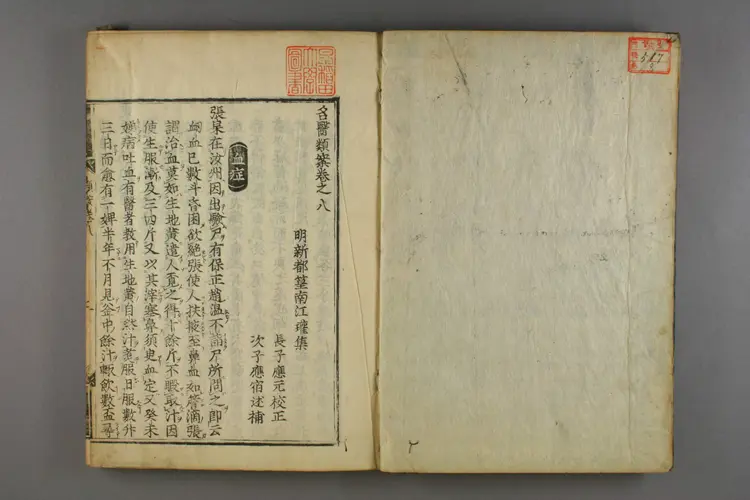 早稻田
大學
圖書
名醫類案卷之八
明新都篁南江瓘集
長子應元校正
次子應宿述補
血症
張杲在汝州因出驗尸有保正趙溫不詣尸所問之即云
衂血已數斗昏困欲絕張使人扶掖至鼻血如簷滴張
謂治血莫如生地黃遣人覓之得十餘斤不暇取汁因
使生服漸及三四斤又以其滓塞鼻須臾血定又癸未
婦病吐血有醫者教用生地黃自然汁煮服日服數升
三日而愈有一婢半年不月見釜中餘汁輒飲數盃尋